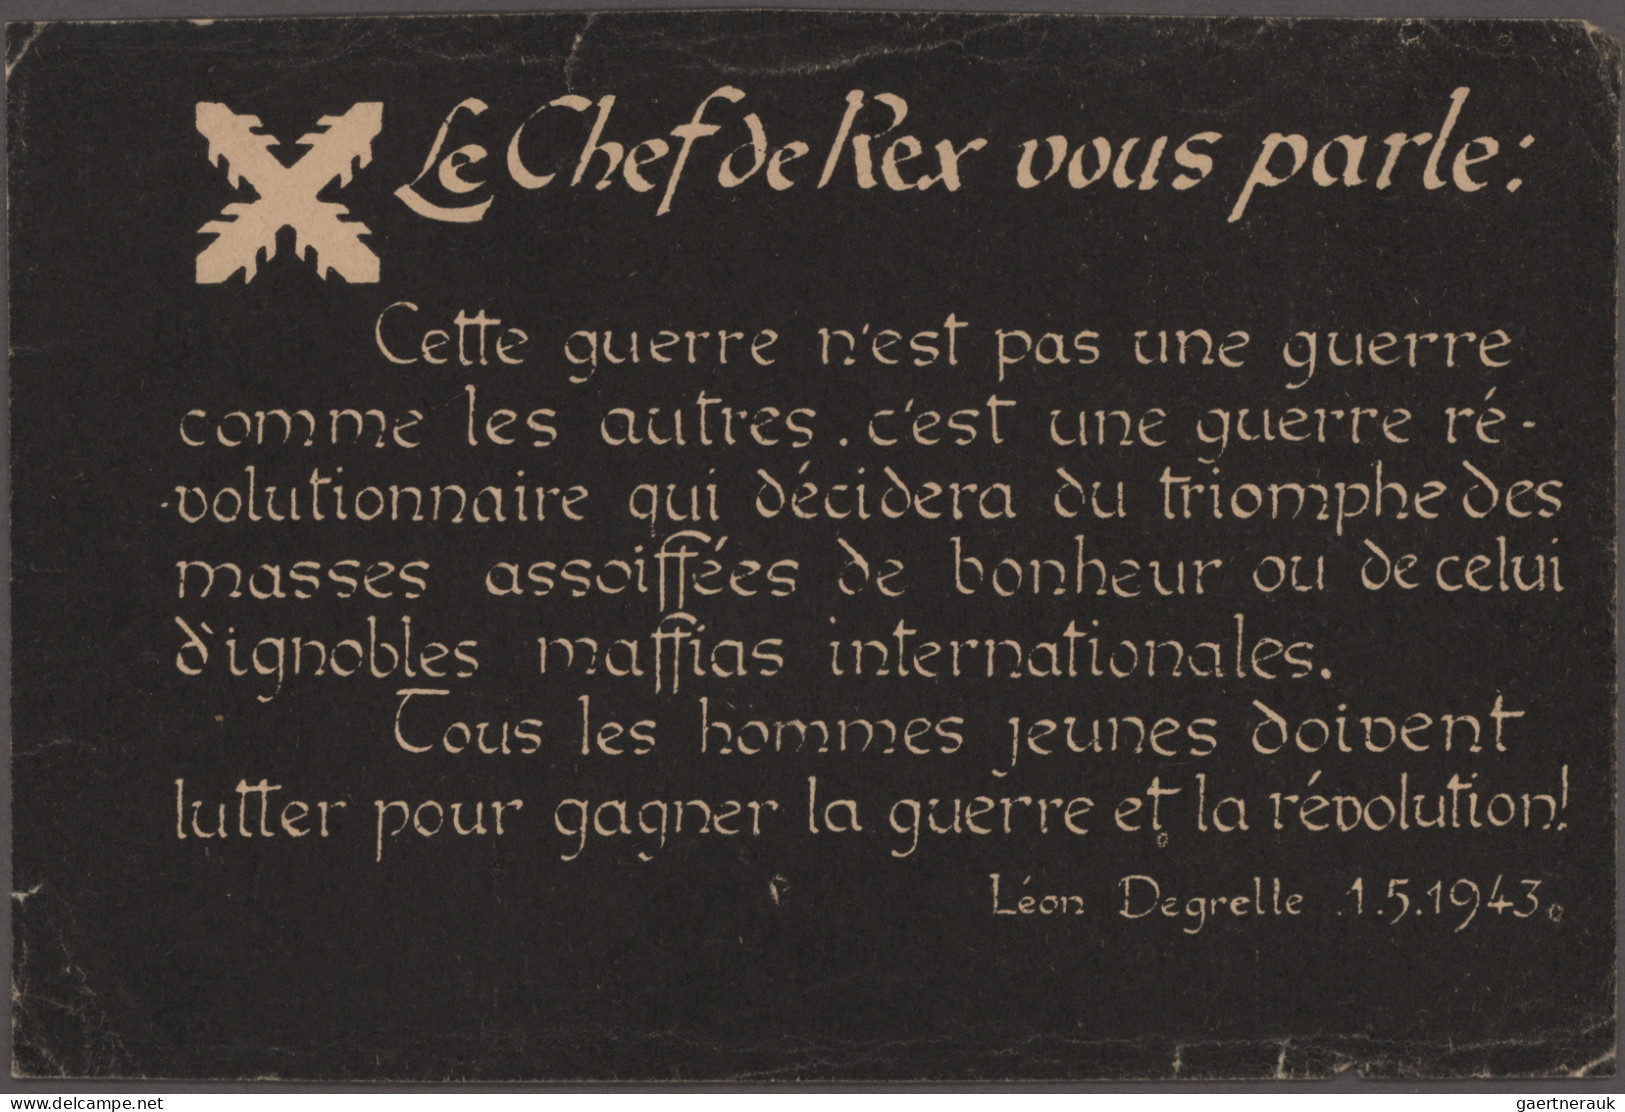 Le Chef de Rex vous parle:
Cette guerre n'est pas une guerre
comme les autres. c'est une guerre ré-
-volutionnaire qui décidera du triomphe des
masses assoiffées de bonheur ou de celui
d'ignobles maffias internationales.
Tous les hommes jeunes doivent
lutter pour gagner la guerre et la révolution!
Léon Degrelle .1.5.1943.
www.delcampe.net
gaertnerauk